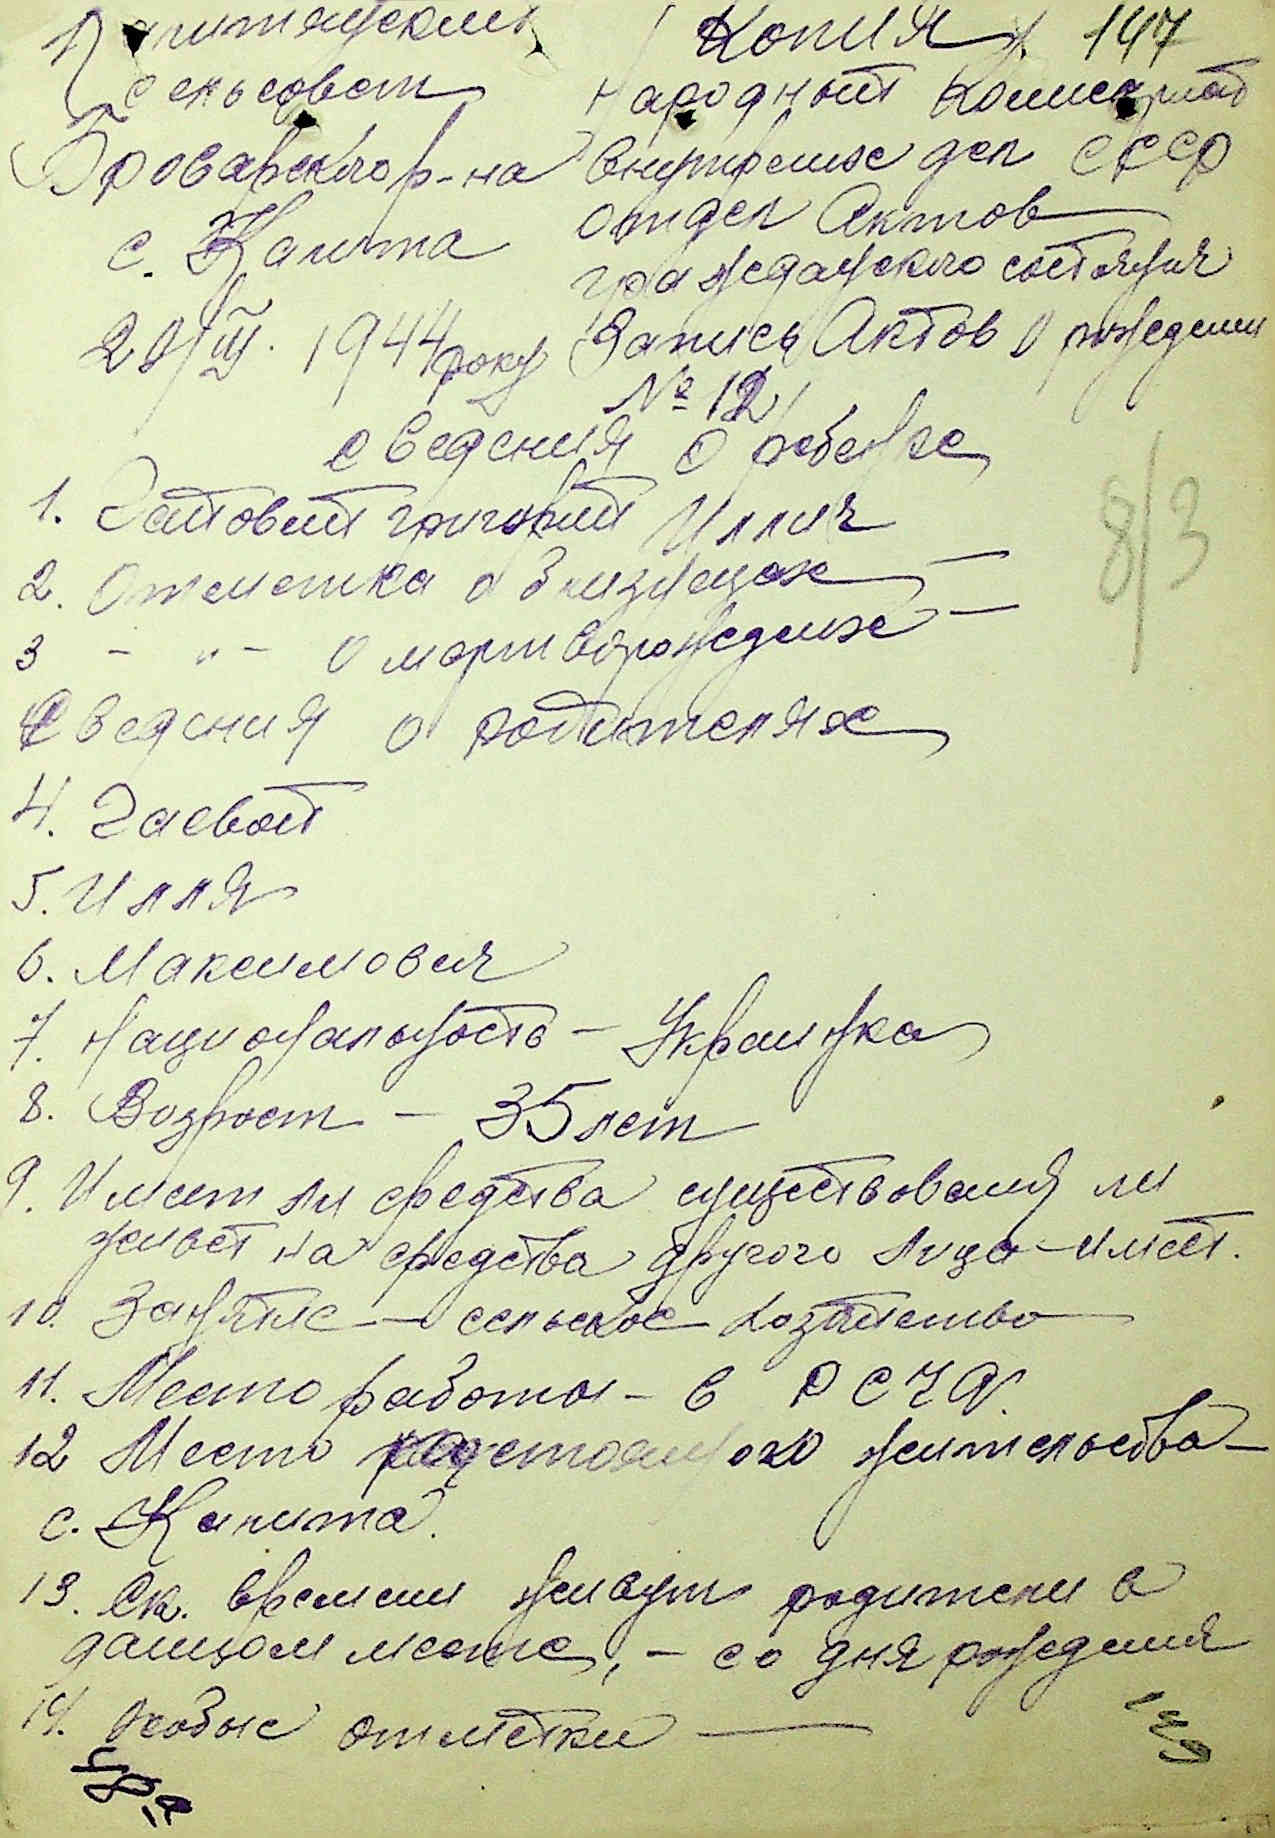 Копия 147
сельсовет
Народный Комиссариат
Броварского р-на
Внутрених дел СССР
с. Калита
отдел Актов
гражданского состояния
1944 року
Запись Актов о рождении
№ 12
Сведения о ребенке
8/3
1. Григорий Иллич
2. Отметка о близнецах —
3 - " - о мертворожденых —
Сведения о родителях
4.
5. Илля
6. Максимович
7. Национальность – Украинка
8. Возрост – 35 лет
9. Имеет ли средства существования ли
живет на средства другого лица – имеет.
10. Занятие – сельское хозяйство
11. Место работы – в
12 Место постоянного жительства –
с. Калита.
13. Ск. времени живут родители в
данном месте, – со дня рождения
14. Особые отметки —